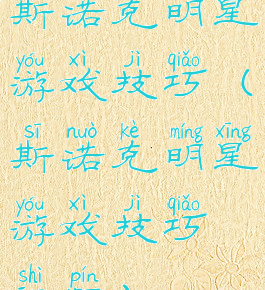 斯诺克明星
yóu xì jì qiǎo
游戏技巧（
sī nuò kè míng xīng
斯诺克明星
yóu xì jì qiǎo
游戏技巧
shì pín